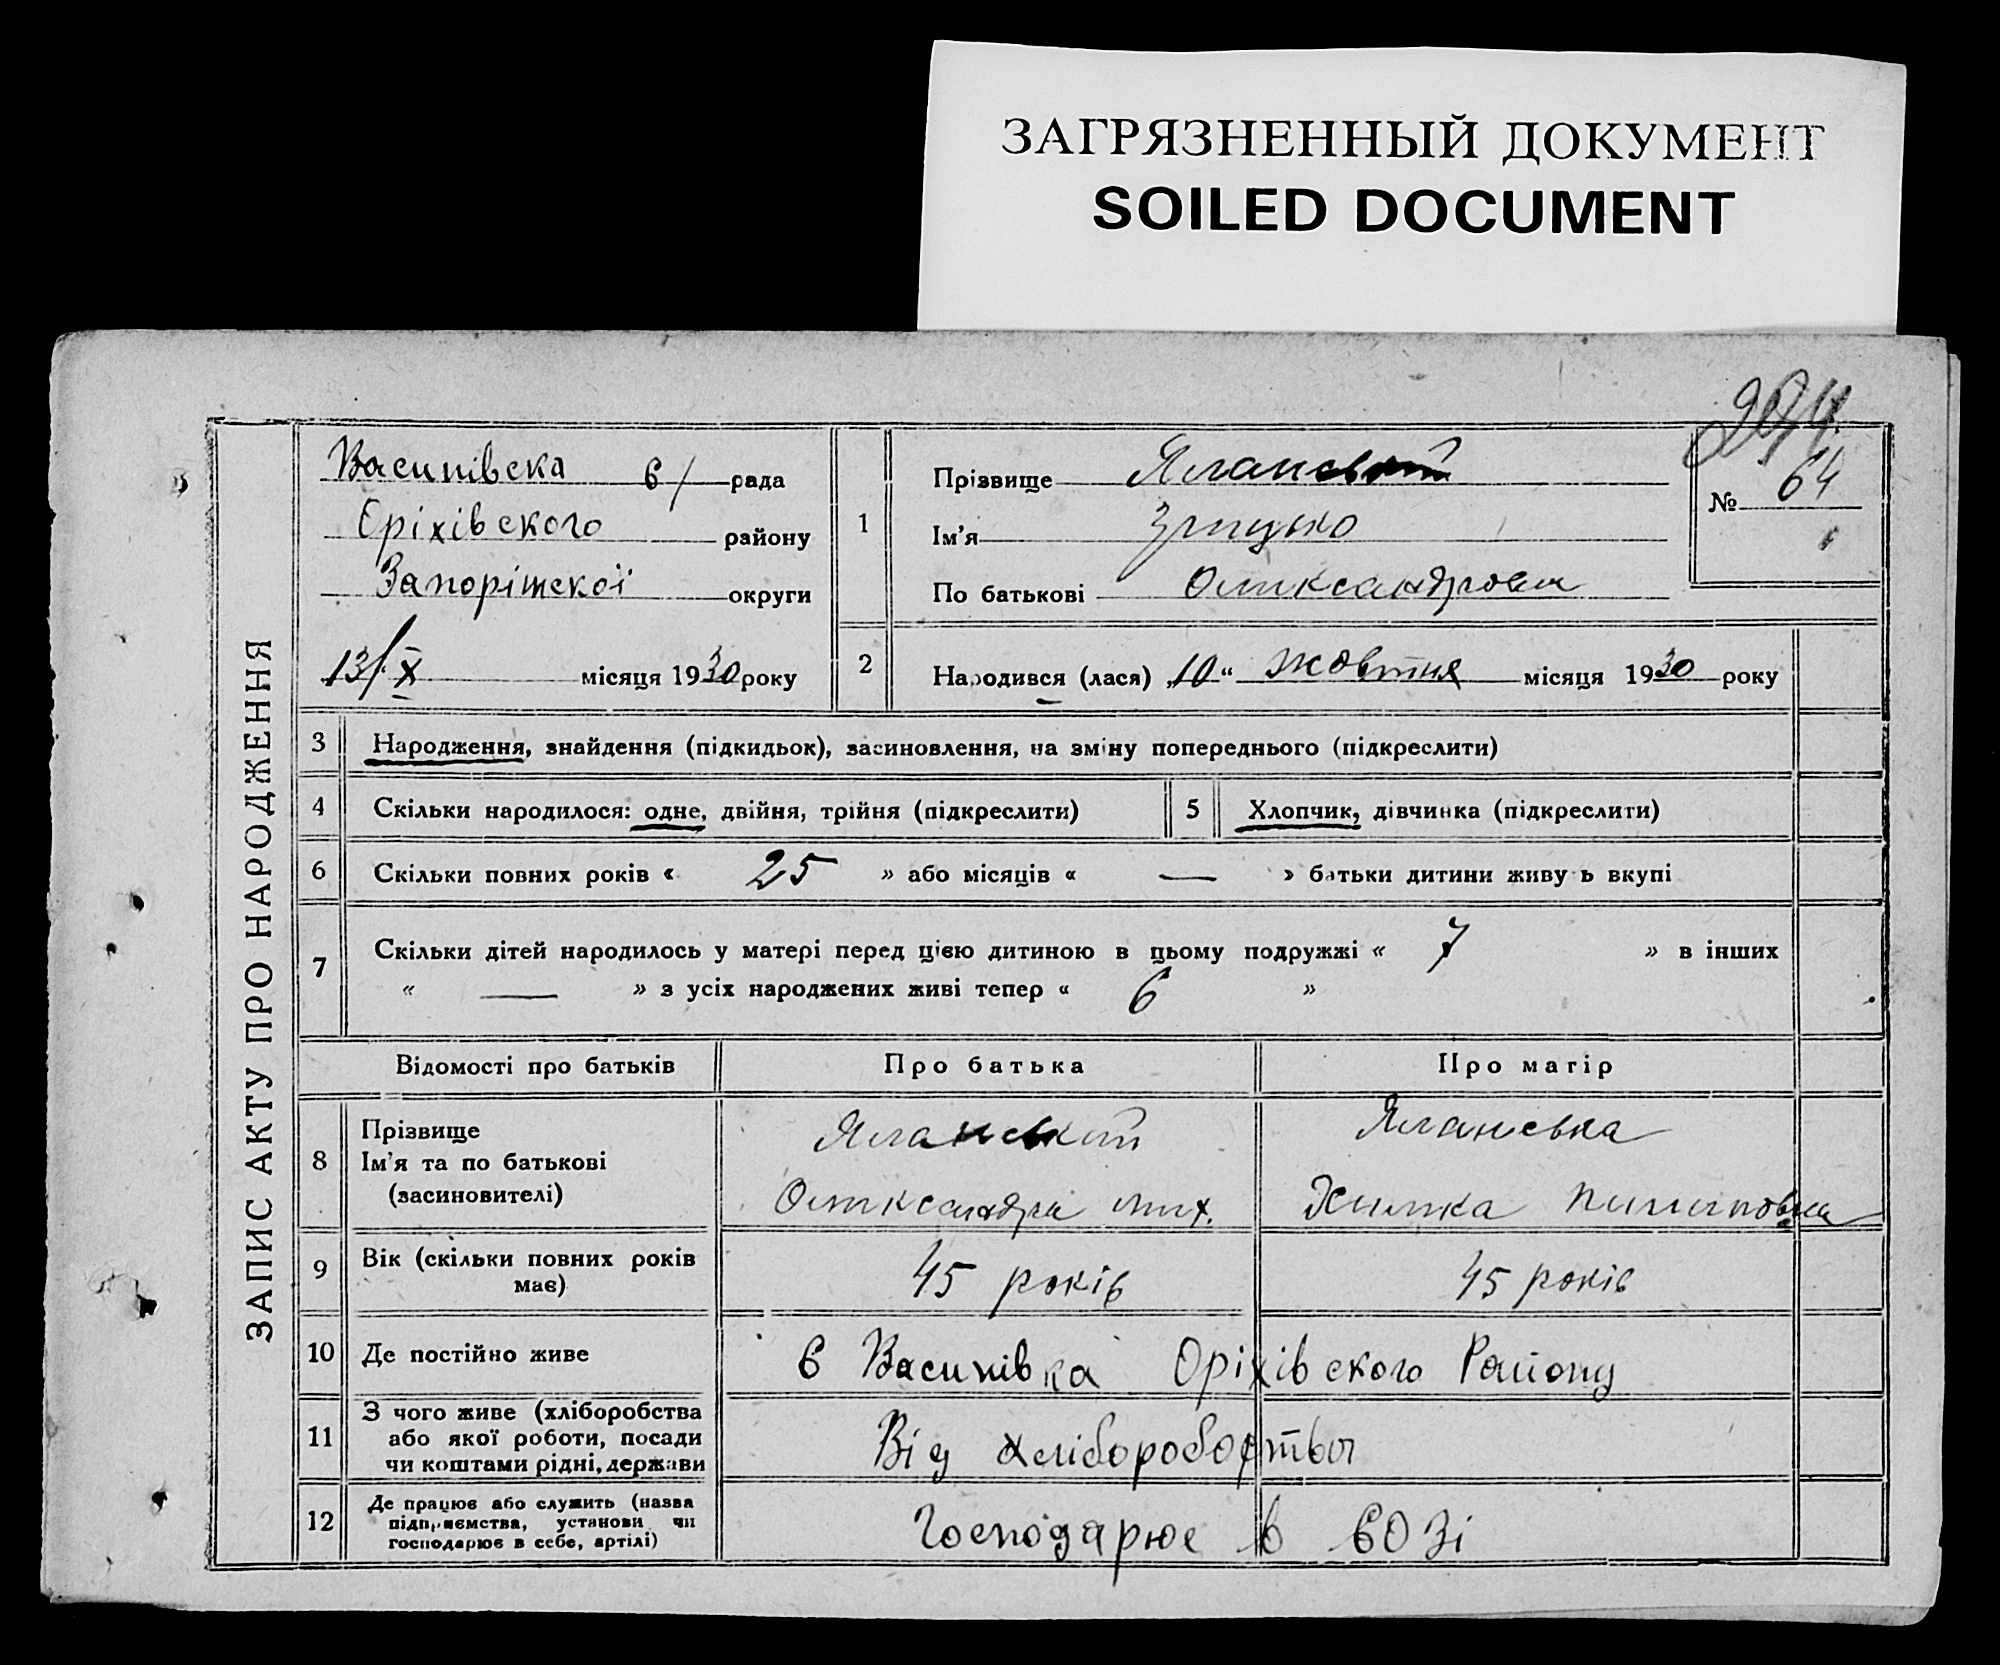 ЗАГРЯЗНЕННЫЙ ДОКУМЕНТ
SOILED DOCUMENT
ЗАПИС АКТУ ПРО НАРОДЖЕННЯ
Василівска с/ рада
Оріхівского району
Запоріжскої округи
13/X місяця 1930 року
1
Прізвище Яланський
Ім'я Грицько
По батькові Олександрович
№ 64
2 Народився (лася) „10“ жовтня місяця 1930 року
3 Народження, знайдення (підкидьок), засиновлення, на зміну попереднього (підкреслити)
4 Скільки народилося: одне, двійня, трійня (підкреслити) 5 Хлопчик, дівчинка (підкреслити)
6 Скільки повних років « 25 » або місяців « — » батьки дитини живуть вкупі
7 Скільки дітей народилось у матері перед цією дитиною в цьому подружжі « 7 » в інших
« — » з усіх народжених живі тепер « 6 »
Відомості про батьків Про батька Про матір
8 Прізвище
Ім'я та по батькові
(засиновителі)
Яланський Яланська
Олександр Мих. Химка Пилиповна
9 Вік (скільки повних років має) 45 років 45 років
10 Де постійно живе с Василівка Оріхівского Району
11 З чого живе (хліборобства
або якої роботи, посади
чи коштами рідні, держави
Від хліборобства
12 Де працює або служить (назва
підприємства, установи чи
господарює в себе, артілі)
Господарює в СОЗі